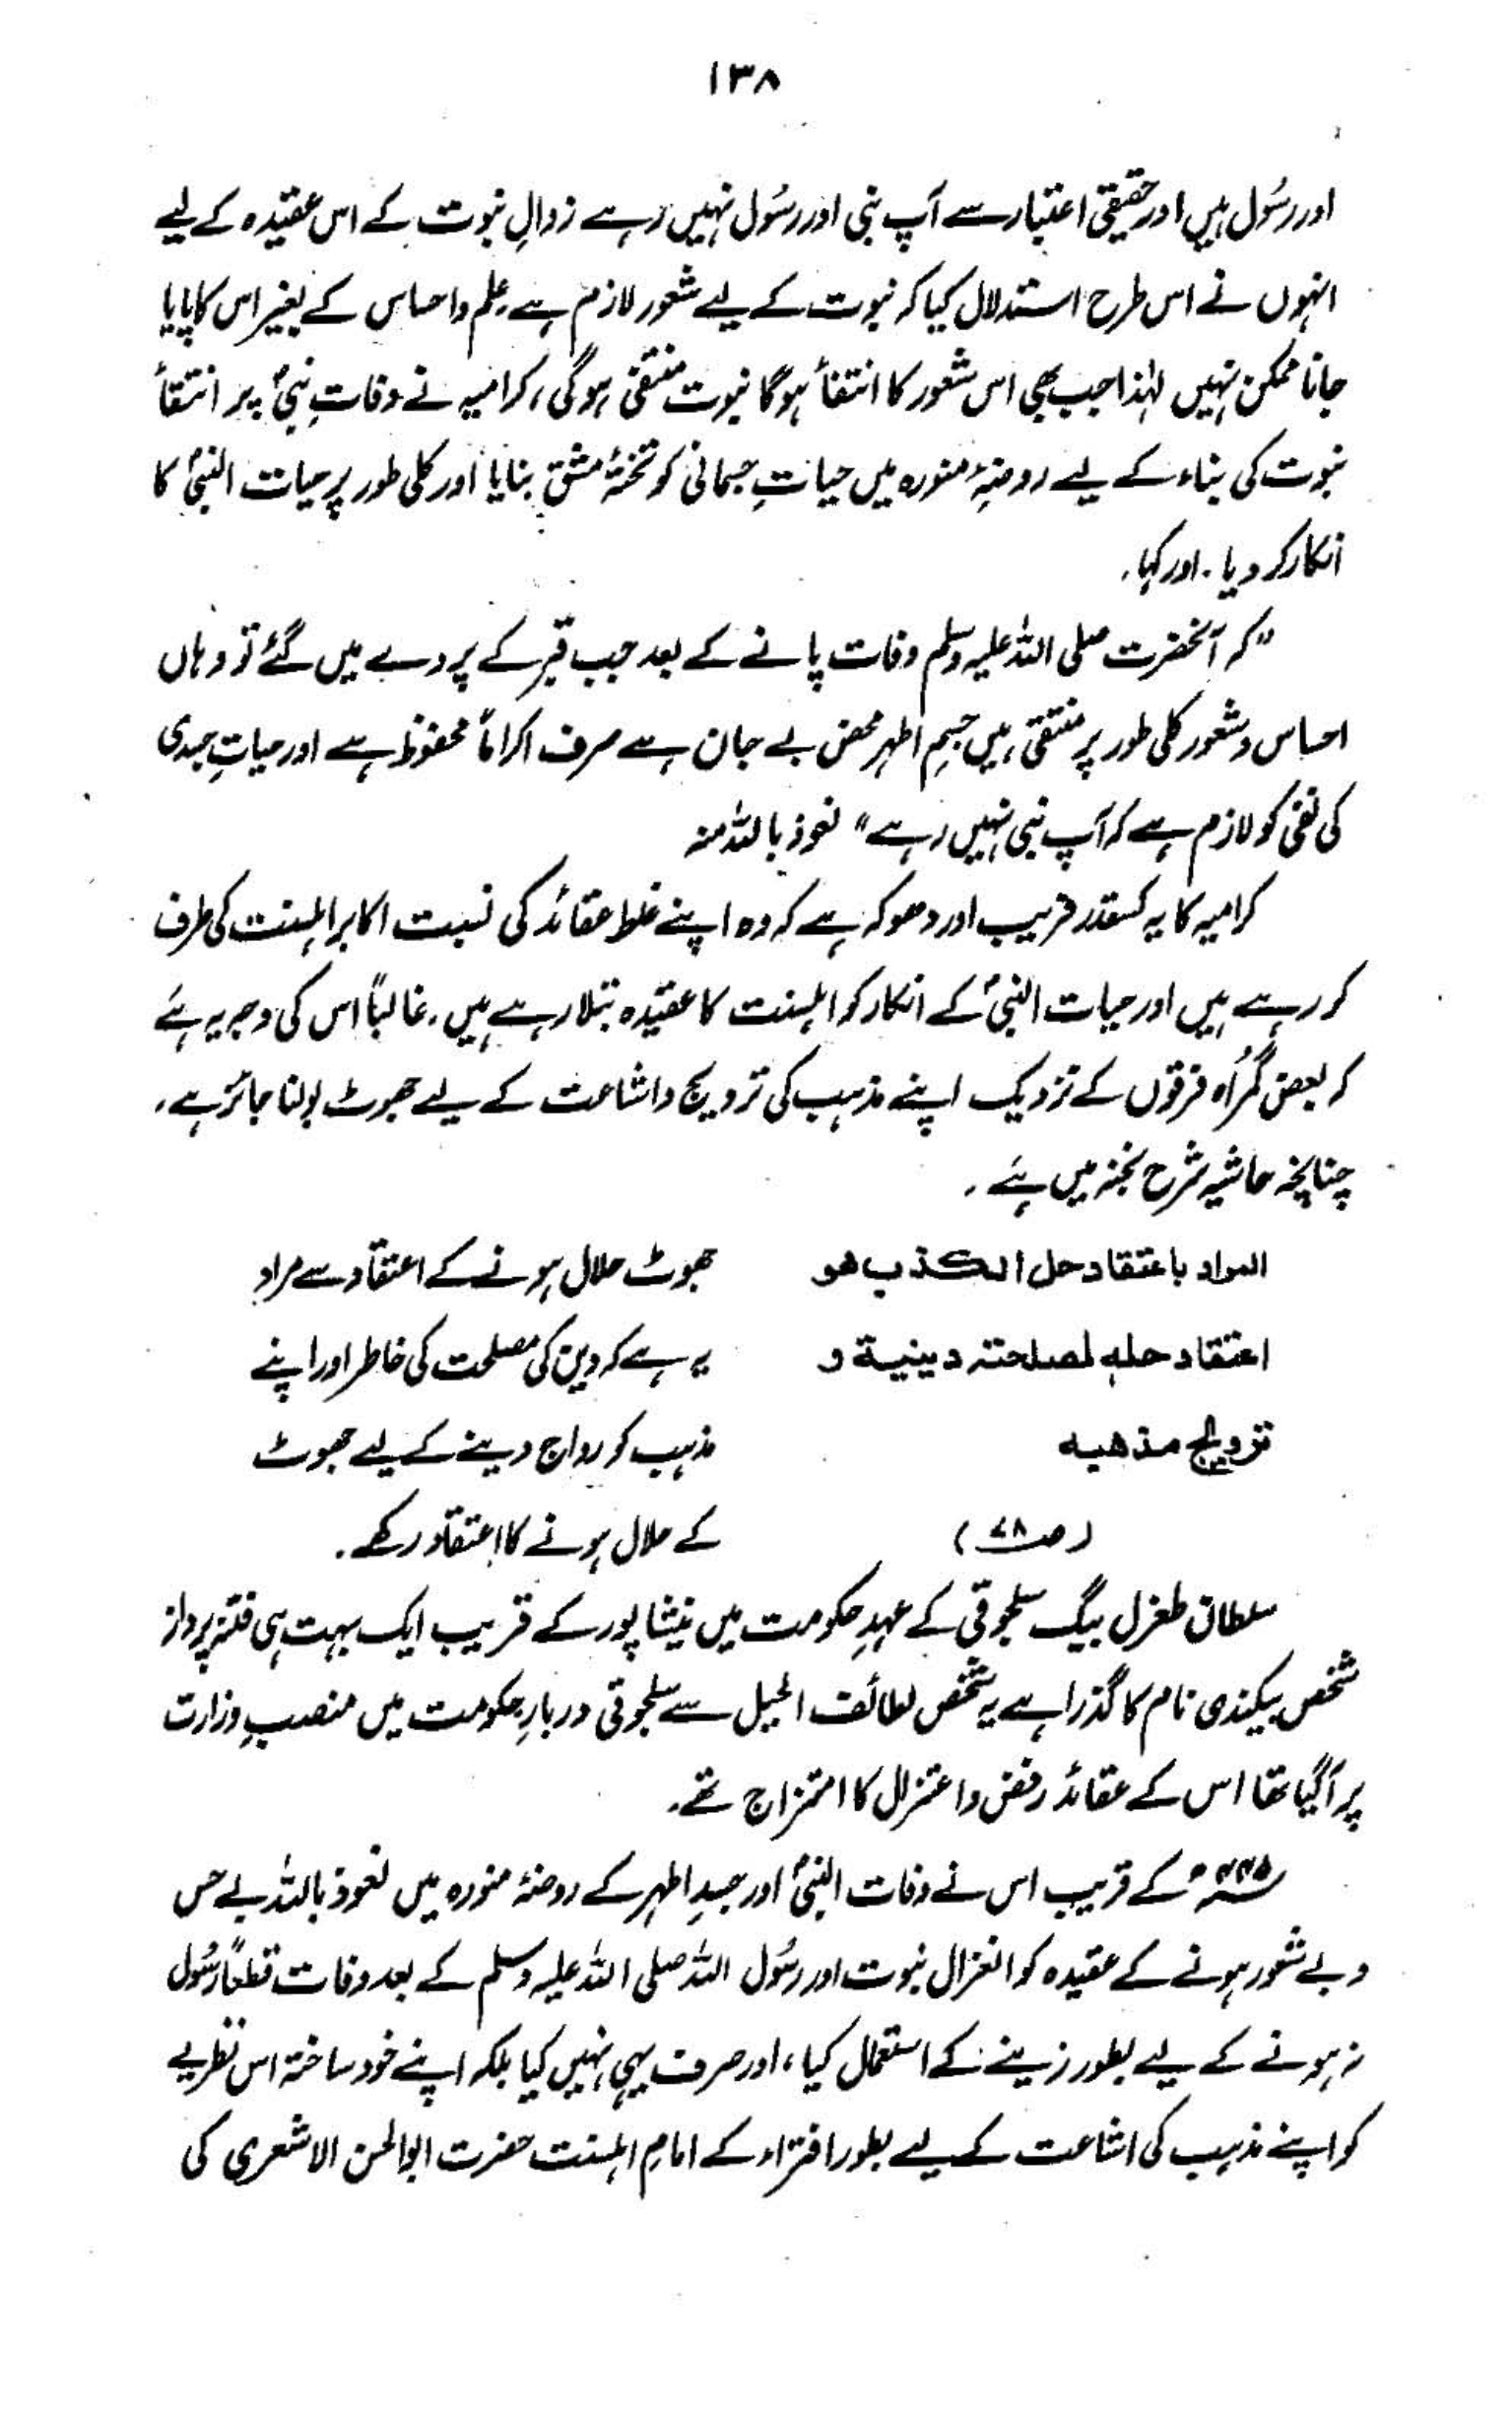 ۱۳۸
اور رسُول ہیں اور حقیقی اعتبار سے آپ نبی اور رسُول نہیں رہے زوالِ نبوت کے اس عقیدہ کے لیے
انہوں نے اس طرح استدلال کیا کہ نبوت کے لیے شعور لازم ہے، علم و احساس کے بغیر اس کا پایا
جانا ممکن نہیں لہٰذا جب بھی اس شعور کا انتفأ ہوگا نبوت منتفی ہوگی، کرامیہ نے وفاتِ نبیؐ پر انتفأ
نبوت کی بناء کے لیے روضۂ منورہ میں حیاتِ جسمانی کو تختۂ مشق بنایا اور کلی طور پر حیات النبیؐ کا
انکار کر دیا۔ اور کہا۔
"کہ آنحضرت صلی اللہ علیہ وسلم وفات پانے کے بعد جب قبر کے پردے میں گئے تو وہاں
احساس و شعور کلی طور پر منتفی ہیں جسمِ اطہر محض بے جان ہے صرف اکراماً محفوظ ہے اور حیاتِ جسدی
کی نفی کو لازم ہے کہ آپ نبی نہیں رہے" نعوذ باللہ منہ
کرامیہ کا یہ کسقدر فریب اور دھوکہ ہے کہ وہ اپنے غلط عقائد کی نسبت اکابر اہلسنت کی طرف
کر رہے ہیں اور حیات النبیؐ کے انکار کو اہلسنت کا عقیدہ بتلا رہے ہیں۔ غالباً اس کی وجہ یہ ہے
کہ بعض گمراہ فرقوں کے نزدیک اپنے مذہب کی ترویج و اشاعت کے لیے جھوٹ بولنا جائز ہے،
چنانچہ حاشیہ شرح نخبہ میں ہے۔
المراد باعتقاد حل الکذب ھو جھوٹ حلال ہونے کے اعتقاد سے مراد
اعتقاد حلہ لمصلحتہ دینیۃ و یہ ہے کہ دین کی مصلحت کی خاطر اور اپنے
ترویج مذھبہ مذہب کو رواج دینے کے لیے جھوٹ
(ص۷۸) کے حلال ہونے کا اعتقاد رکھے۔
سلطان طغرل بیگ سلجوقی کے عہدِ حکومت میں نیشاپور کے قریب ایک بہت ہی فتنہ پرداز
شخص بیکندی نام کا گذرا ہے یہ شخص لطائف الحیل سے سلجوقی دربارِ حکومت میں منصبِ وزارت
پر آگیا تھا اس کے عقائد رفض و اعتزال کا امتزاج تھے۔
۴۴۵ھ کے قریب اس نے وفات النبیؐ اور جسدِ اطہر کے روضۂ منورہ میں نعوذ باللہ بے حس
و بے شعور ہونے کے عقیدہ کو انعزال نبوت اور رسُول اللہ صلی اللہ علیہ وسلم کے بعد وفات قطعاً رسُول
نہ ہونے کے لیے بطور زینے کے استعمال کیا، اور صرف یہی نہیں کیا بلکہ اپنے خود ساختہ اس نظریے
کو اپنے مذہب کی اشاعت کے لیے بطور افتراء کے امامِ اہلسنت حضرت ابوالحسن الاشعری کی